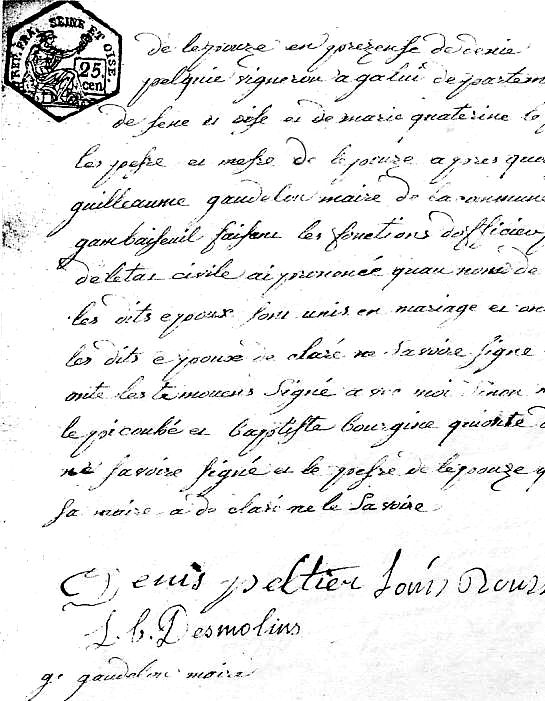 REP. FRA. SEINE ET OISE.
25. cen
de lepouze en prezense de denie
pelquie vigneron a galui departem
de sene et oise et de marie quaterine le
les pesre et mesre de lepouze apres quoi
guilleaume gaudelon maire de la commune
gambaiseuil faisent les fonctions dofficiery
de letat civile ai prononcée quau nom de
les dits epoux sont unis en mariage et on
les dits epouxe de claré ne savoire signe
onte les temouens signé a vec moi sinon
le picoubé et baptiste bourgine qui onte
ne savoire signé et le pesre de lepouze q
sa maire a de claré ne le savoire
Denis peltier Louis
L. b. Desmolins
g. gaudelon maire